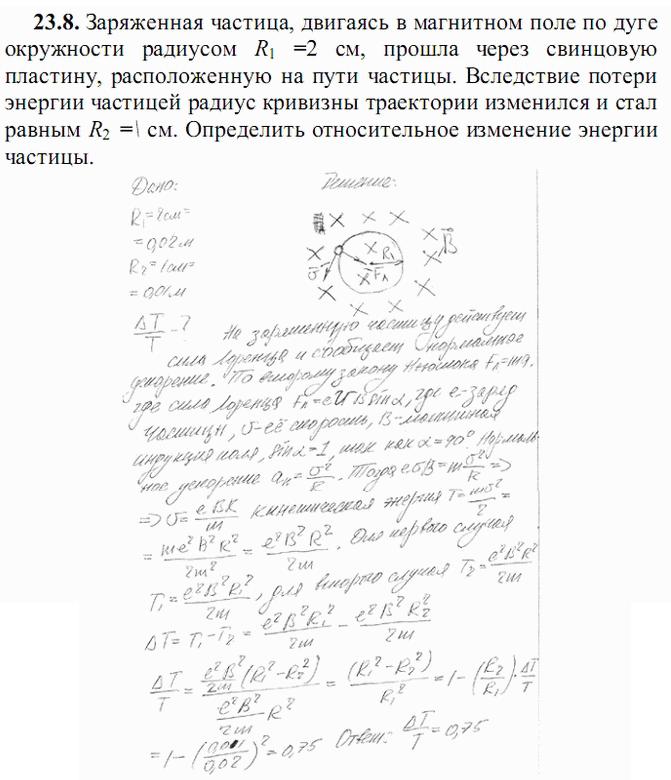 23.8. Заряженная частица, двигаясь в магнитном поле по дуге
окружности радиусом R₁ =2 см, прошла через свинцовую
пластину, расположенную на пути частицы. Вследствие потери
энергии частицей радиус кривизны траектории изменился и стал
равным R₂ =\ см. Определить относительное изменение энергии
частицы.
Дано:
Решение:
R₁=2см=
=0,02м
R₂=1см=
=0,01м
ΔT/T -?
R₁
B
υ
Fл
На заряженную частицу действует
сила Лоренца и сообщает нормальное
ускорение. По второму закону Ньютона Fл=ma.
где сила Лоренца Fл=eυBsinα, где e-заряд
частицы, υ-её скорость, B-магнитная
индукция поля, sinα=1, так как α=90°. Нормаль-
ное ускорение aₙ=υ²/R. Тогда eυB=mυ²/R =>
=> υ=eBR/m кинетическая энергия T=mυ²/2=
=me²B²R²/2m²=e²B²R²/2m. Для первого случая
T₁=e²B²R₁²/2m, для второго случая T₂=e²B²R²/2m
ΔT=T₁-T₂=e²B²R₁²/2m-e²B²R₂²/2m
ΔT/T=e²B²/2m(R₁²-R₂²)/e²B²/2m R²=(R₁²-R₂²)/R₁²=1-(R₂/R₁)·ΔT/T
=1-(0,001/0,02)²=0,75 Ответ: ΔT/T=0,75